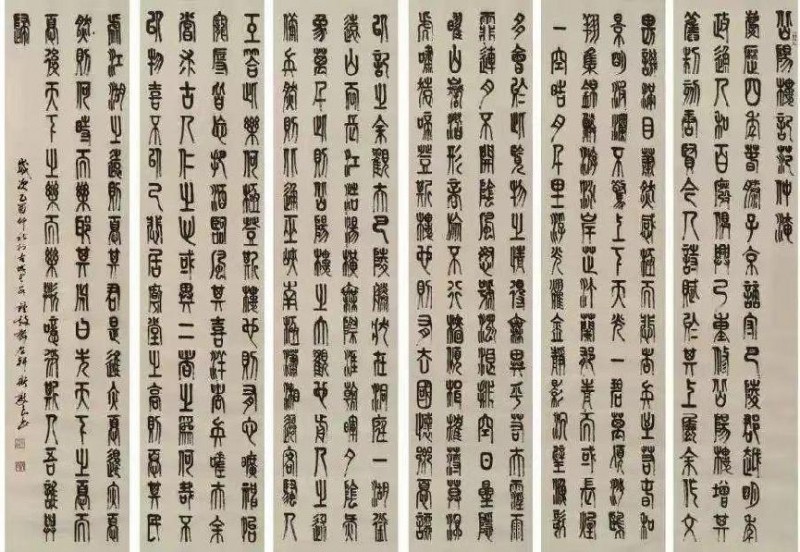 岳陽樓記范仲淹
慶歷四年春滕子京謫守巴陵郡越明年
政通人和百廢俱興乃重修岳陽樓增其
舊制刻唐賢今人詩賦於其上屬余作文
畏譏滿目蕭然感極而悲者矣至若春和
景明波瀾不驚上下天光一碧萬頃沙鷗
翔集錦鱗游泳岸芷汀蘭郁青而或長煙
一空皓月千里浮光耀金靜影沉璧漁歌
多會於此覽物之情得無異乎若夫霪雨
霏連月不開陰風怒號濁浪排空日星隱
曜山岳潛形商旅不行檣傾楫摧薄暮冥
虎嘯猿啼登斯樓也則有去國懷鄉憂讒
以記之余觀夫巴陵勝狀在洞庭一湖銜
遠山吞長江浩湯橫無際涯朝暉夕陰氣
象萬千此則岳陽樓之大觀也前人之述
備矣然則北通巫峽南極瀟湘遷客騷人
互答此樂何極登斯樓也則有心曠神怡
寵辱皆忘把酒臨風其喜洋者矣嗟夫余
嘗求古人仁之心或異二者之爲何哉不
以物喜不以己悲居廟堂之高則憂其民
處江湖之遠則憂其君是進亦憂退亦憂
然則何時而樂耶其必曰先天下之憂而
憂後天下之樂而樂歟噫微斯人吾誰與
歸
歲次乙酉仲秋